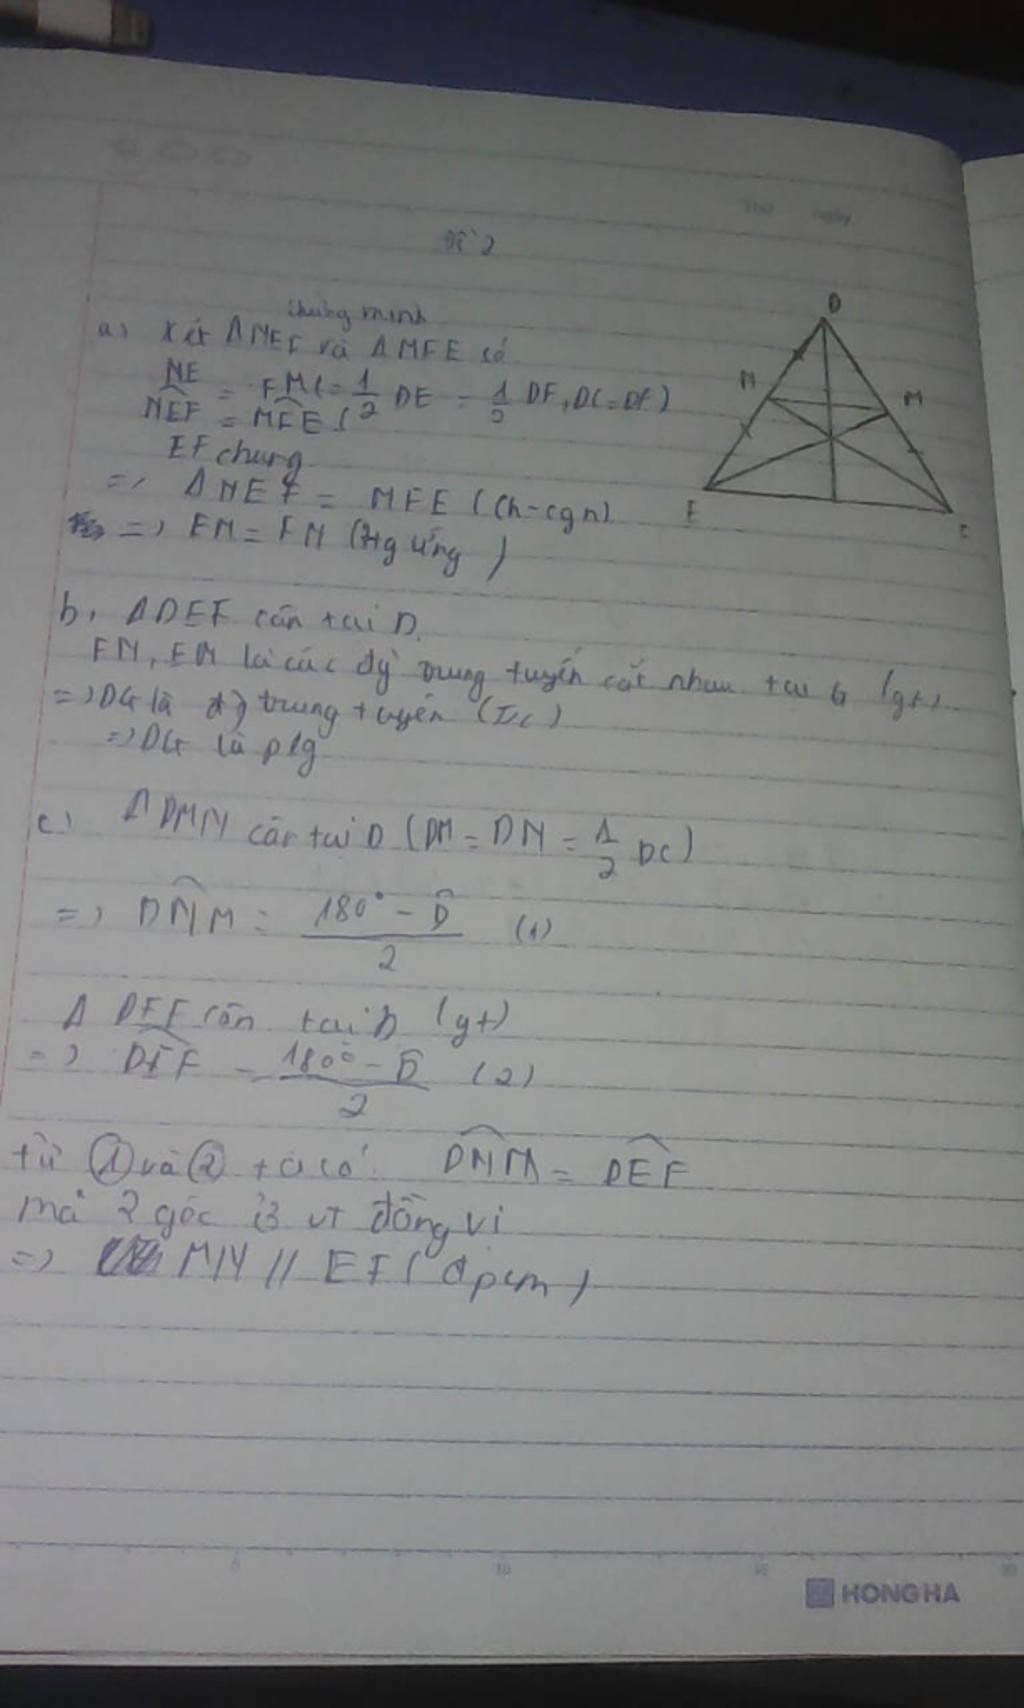 Đề 2
Chứng minh
a) Xét ΔNEF và ΔMFE có
NE = FM (= 1/2 DE = 1/2 DF, DE = DF)
NEF = MFE (
EF chung
=> ΔNEF = MFE (ch-cgn)
=> EM = FN (2tg ứng)
b, ΔDEF cân tại D.
FN, EM là các đg trung tuyến cắt nhau tại G (gt)
=> DG là đg trung tuyến (t/c)
=> DG là p/g
c) ΔDMN cân tại D (DM = DN = 1/2 DC)
=> DNM = 180° - D / 2 (1)
Δ DEF cân tại D (gt)
=> DEF = 180° - D / 2 (2)
từ ① và ② ta có DNM = DEF
mà 2 góc ở vt đồng vị
=> MN // EF (đpcm)
D
N
M
E
Thứ ngày
5 10 15 20
HONG HA